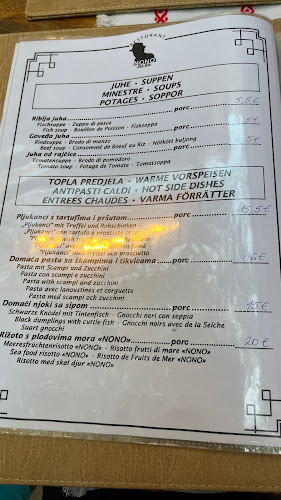 RISTORANTE
NONO
JUHE · SUPPEN
MINESTRE · SOUPS
POTAGES · SOPPOR
Riblja juha porc 5,5 €
Fischsuppe · Zuppa di pesce
Fish soup · Bouillon de Poisson · Fisksoppa
Goveđa juha porc 5 €
Rindsuppe · Brodo di manzo
Beef soup · Consommé de Boeuf au Riz · Nötkött buljong
Juha od rajčice porc 5 €
Tomatensuppe · Brodo di pomodoro
Tomato soup · Potage de Tomate · Tomatsoppa
TOPLA PREDJELA · WARME VORSPEISEN
ANTIPASTI CALDI · HOT SIDE DISHES
ENTREES CHAUDES · VARMA FÖRRÄTTER
Pljukanci s tartufima i pršutom porc 15,5 €
„Pljukanci" mit Trüffel und Rohschinken
„Pljukanci" con tartufo e prosciutto
with
„Pljukanci"
med tryffel och prosciutto
Domaća pasta sa škampima i tikvicama porc 16 €
Pasta mit Scampi und Zucchini
Pasta con scampi e zucchini
Pasta with scampi and zucchini
Pasta avec lanoustines et corguette
Pasta med scampi och zucchini
Domaći njoki sa sipom porc 15 €
Schwarze Knödel mit Tintenfisch · Gnocchi neri con seppia
Black dumplings with cuttle-fish · Gnocchi noirs avec de la Seiche
Svart gnocchi
Rižoto s plodovima mora «NONO» porc 20 €
Meeresfrüchtenrisotto «NONO» · Risotto frutti di mare «NONO»
Sea food risotto «NONO» · Risotto de Fruits de Mer «NONO»
Risotto med skal djur «NONO»